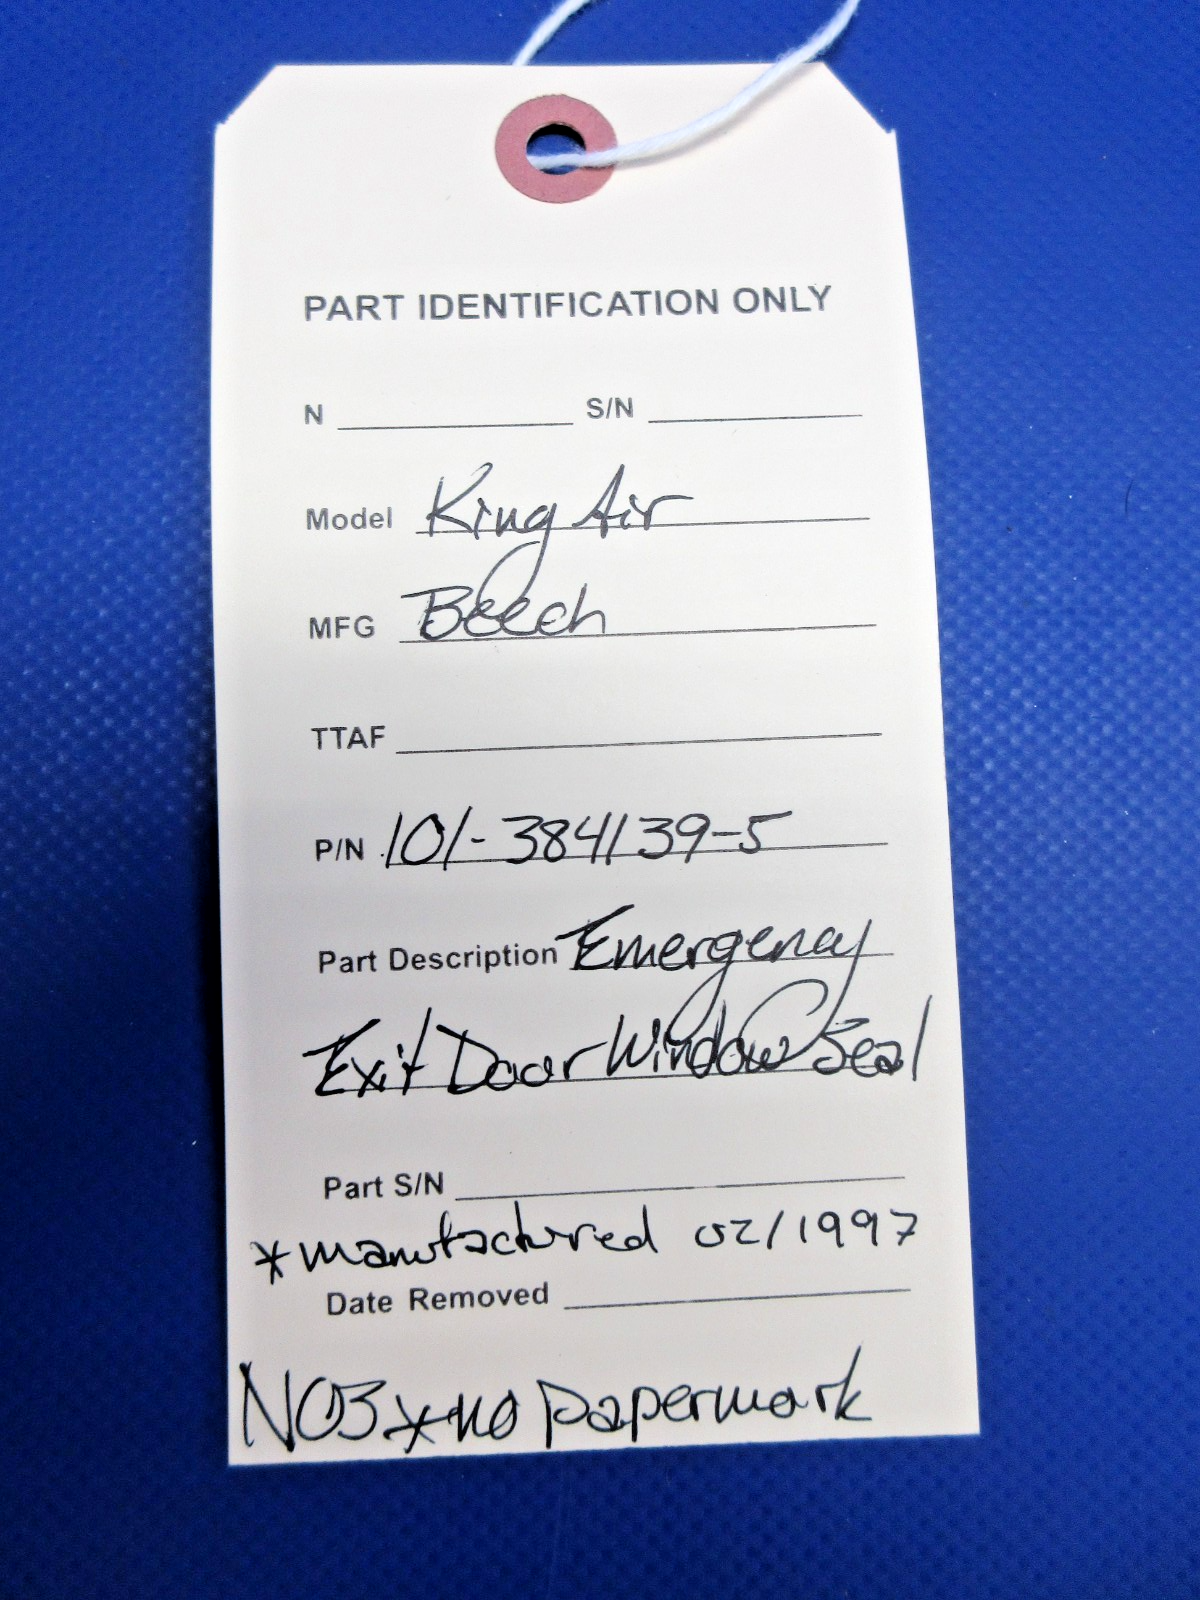 PART IDENTIFICATION ONLY
N S/N
Model King Air
MFG Beech
TTAF
P/N 101-384139-5
Part Description Emergency
Exit Door Window Seal
Part S/N
*manufactured 02/1997
Date Removed
NOS *no paperwork